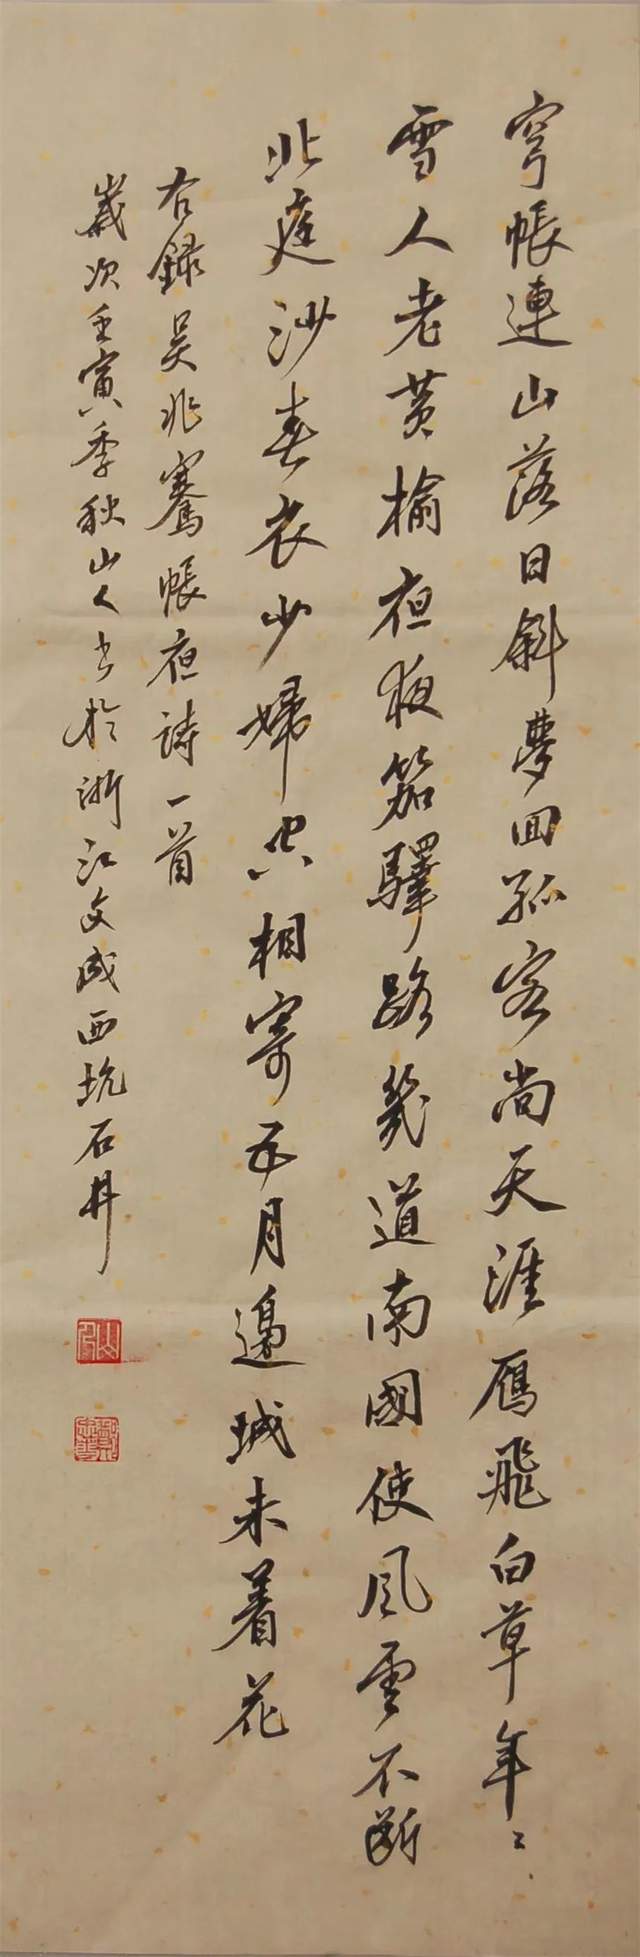 穹帳連山落日斜夢回孤客尚天涯雁飛白草年〻
雪人老黄榆夜夜笳驛路幾道南國使風雲不斷
北庭沙春衣少婦空相寄五月邊城未着花
右錄吳兆騫帳夜詩一首
歲次壬寅季秋山人书於浙江文成西坑石井
山人